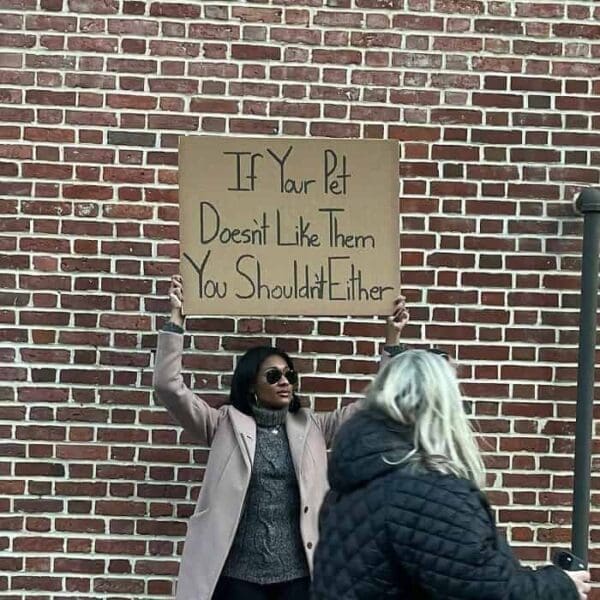 If Your Pet
Doesn't Like Them
You Shouldn't Either